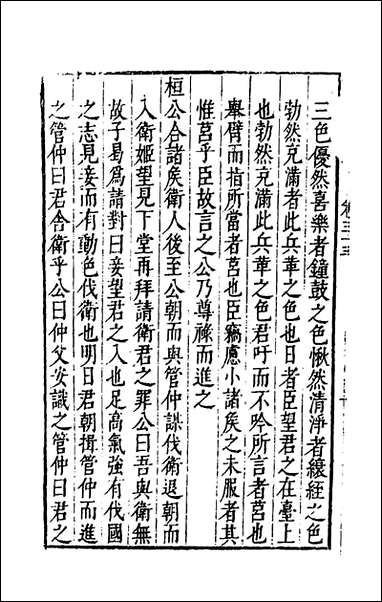 三色優然喜樂者鐘鼓之色愀然清淨者縗絰之色
勃然充滿者此兵革之色也日者臣望君之在臺上
也勃然充滿此兵革之色君吁而不吟所言者莒也
舉臂而指所當者莒也臣竊慮小諸侯之未服者其
惟莒乎臣故言之公乃尊祿而進之
桓公合諸侯衛人後至公朝而與管仲謀伐衛退朝而
入衛姬望見下堂再拜請衛君之罪公曰吾與衛無
故子曷為請對曰妾望君之入也足高氣強有伐國
之志見妾而有動色伐衛也明日君朝揖管仲而進
之管仲曰君舍衛乎公曰仲父安識之管仲曰君之